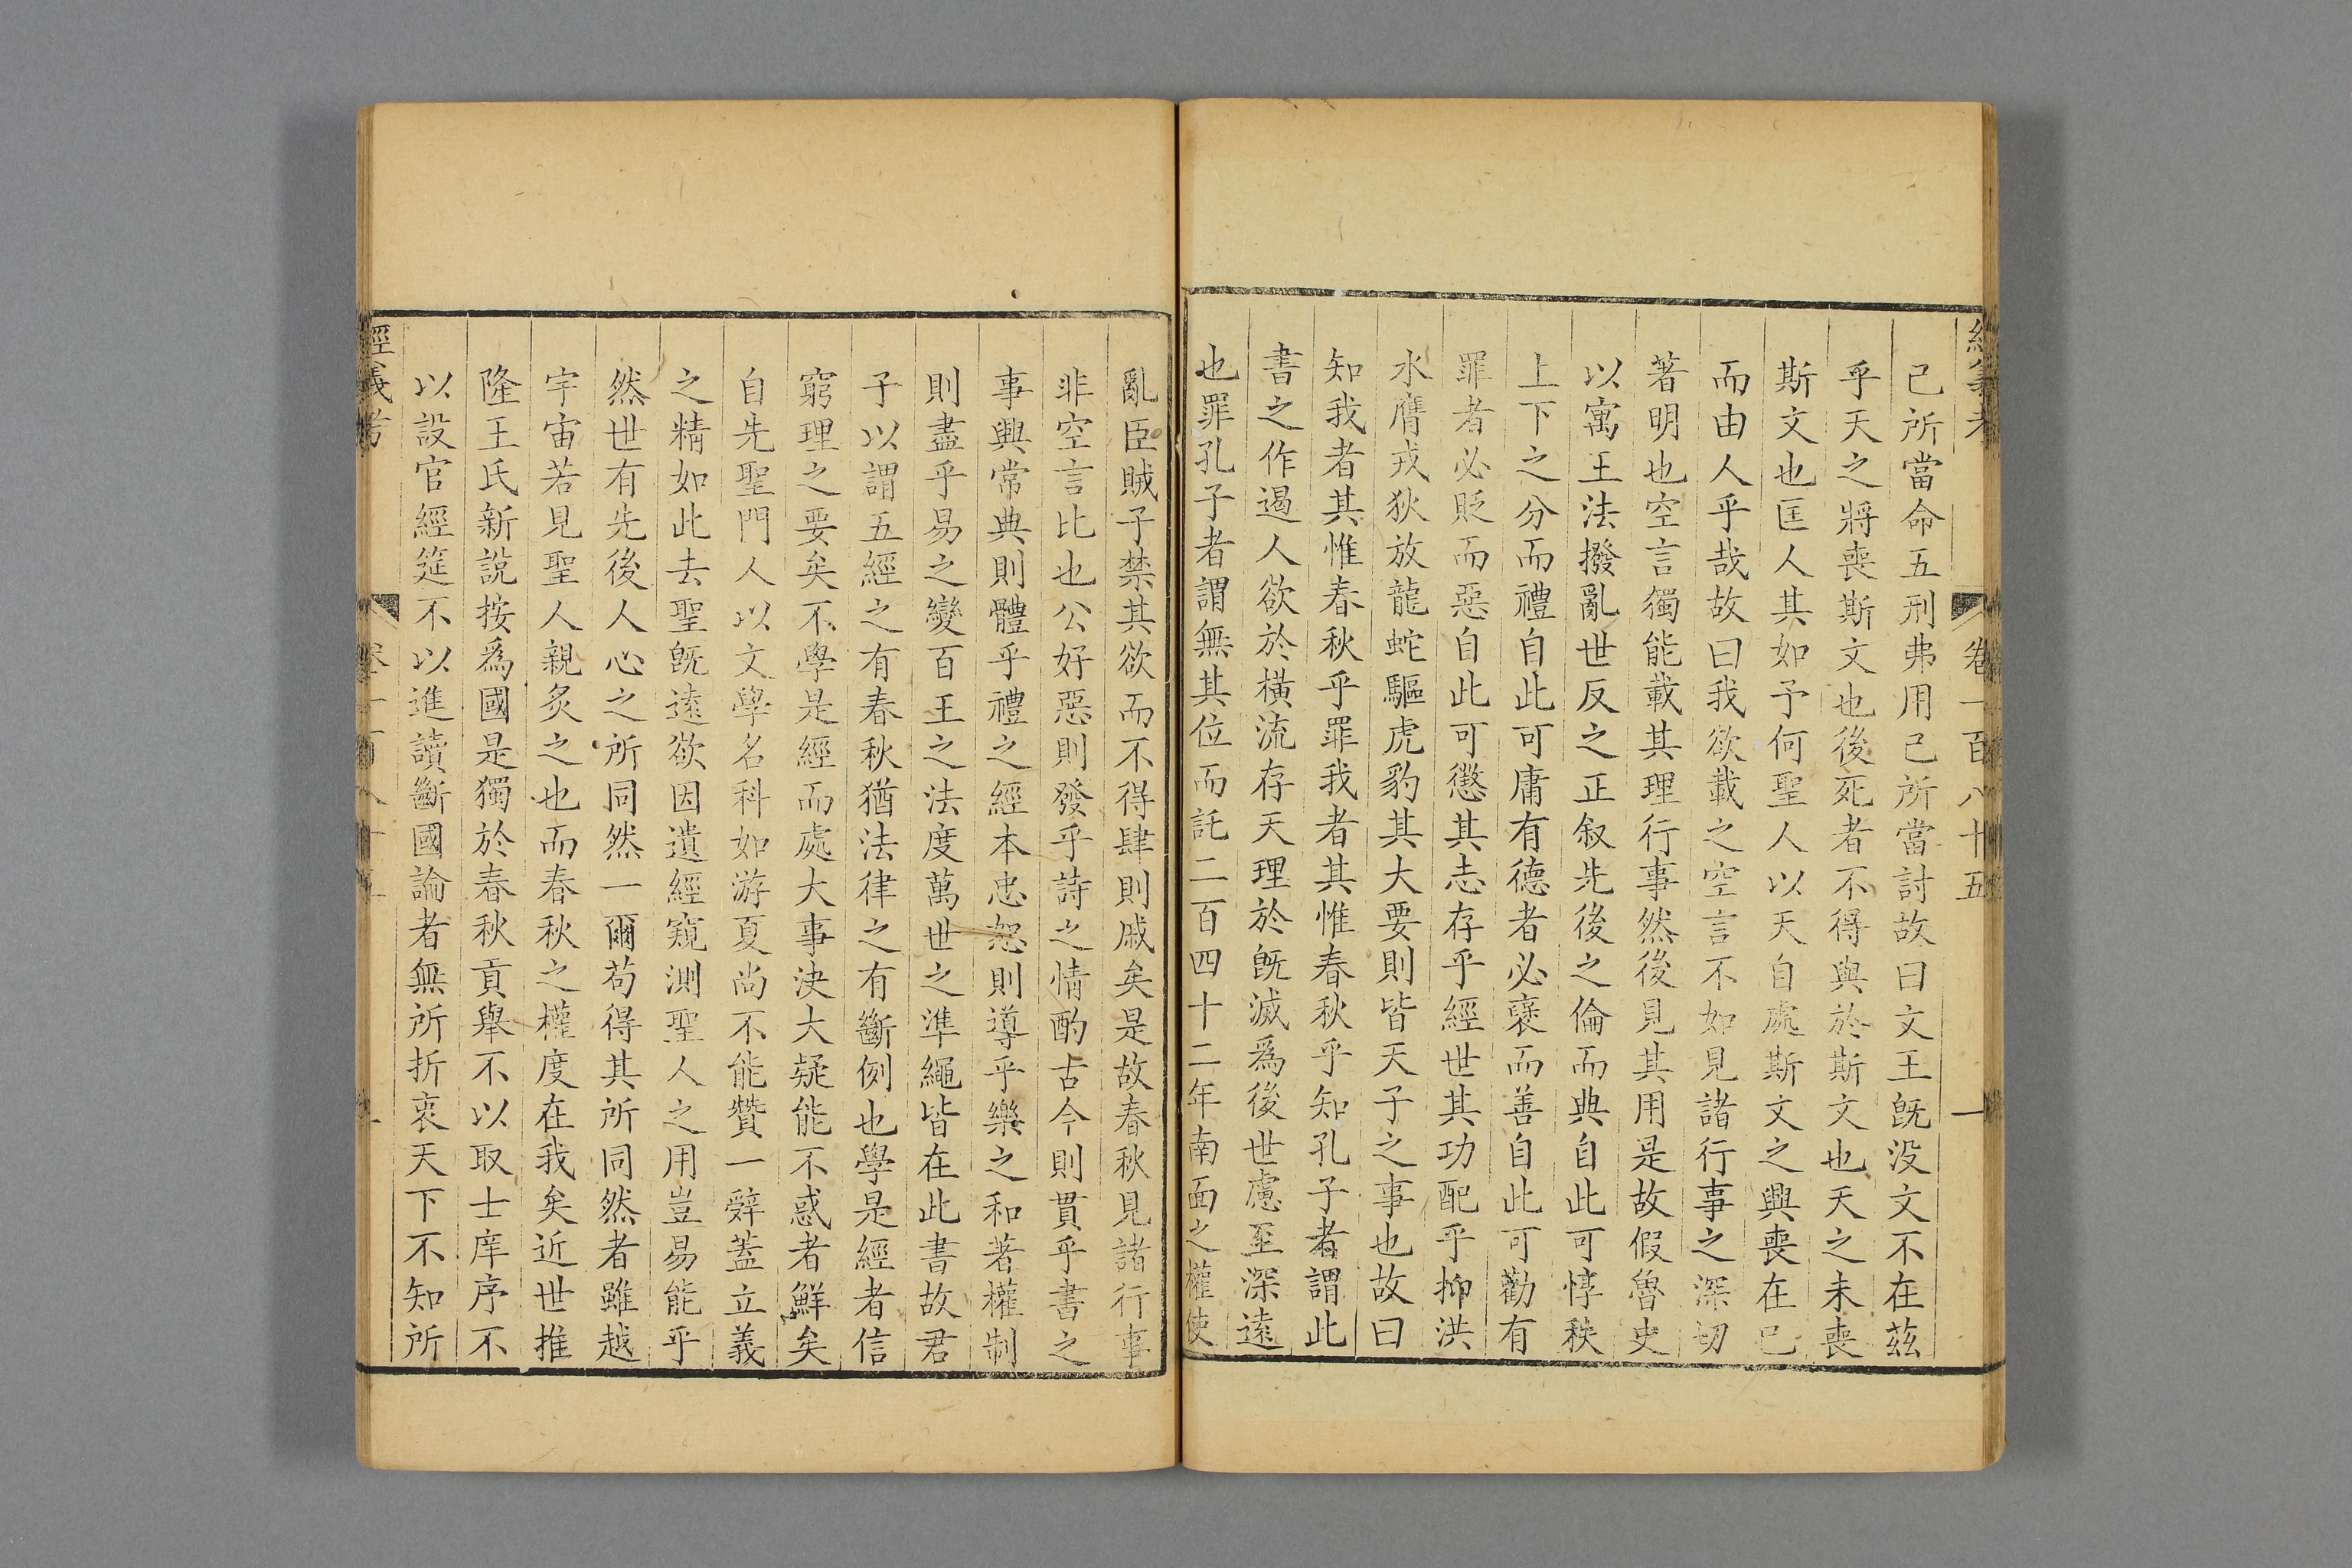 經義考
卷一百八十五
一
己所當命五刑弗用己所當討故曰文王旣没文不在茲
乎天之將喪斯文也後死者不得與於斯文也天之未喪
斯文也匡人其如予何聖人以天自處斯文之興喪在己
而由人乎哉故曰我欲載之空言不如見諸行事之深切
著明也空言獨能載其理行事然後見其用是故假魯史
以寓王法撥亂世反之正叙先後之倫而典自此可惇秩
上下之分而禮自此可庸有德者必襃而善自此可勸有
罪者必貶而惡自此可懲其志存乎經世其功配乎抑洪
水膺戎狄放龍蛇驅虎豹其大要則皆天子之事也故曰
知我者其惟春秋乎罪我者其惟春秋乎知孔子者謂此
書之作遏人欲於橫流存天理於旣滅爲後世慮至深遠
也罪孔子者謂無其位而託二百四十二年南面之權使
亂臣賊子禁其欲而不得肆則戚矣是故春秋見諸行事
非空言比也公好惡則發乎詩之情酌古今則貫乎書之
事興常典則體乎禮之經本忠恕則導乎樂之和著權制
則盡乎易之變百王之法度萬世之準繩皆在此書故君
子以謂五經之有春秋猶法律之有斷例也學是經者信
窮理之要矣不學是經而處大事決大疑能不惑者鮮矣
自先聖門人以文學名科如游夏尚不能贊一辤葢立義
之精如此去聖旣遠欲因遺經窺測聖人之用豈易能乎
然世有先後人心之所同然一爾苟得其所同然者雖越
宇宙若見聖人親炙之也而春秋之權度在我矣近世推
隆王氏新說按爲國是獨於春秋貢舉不以取士庠序不
以設官經筵不以進讀斷國論者無所折衷天下不知所
經義考